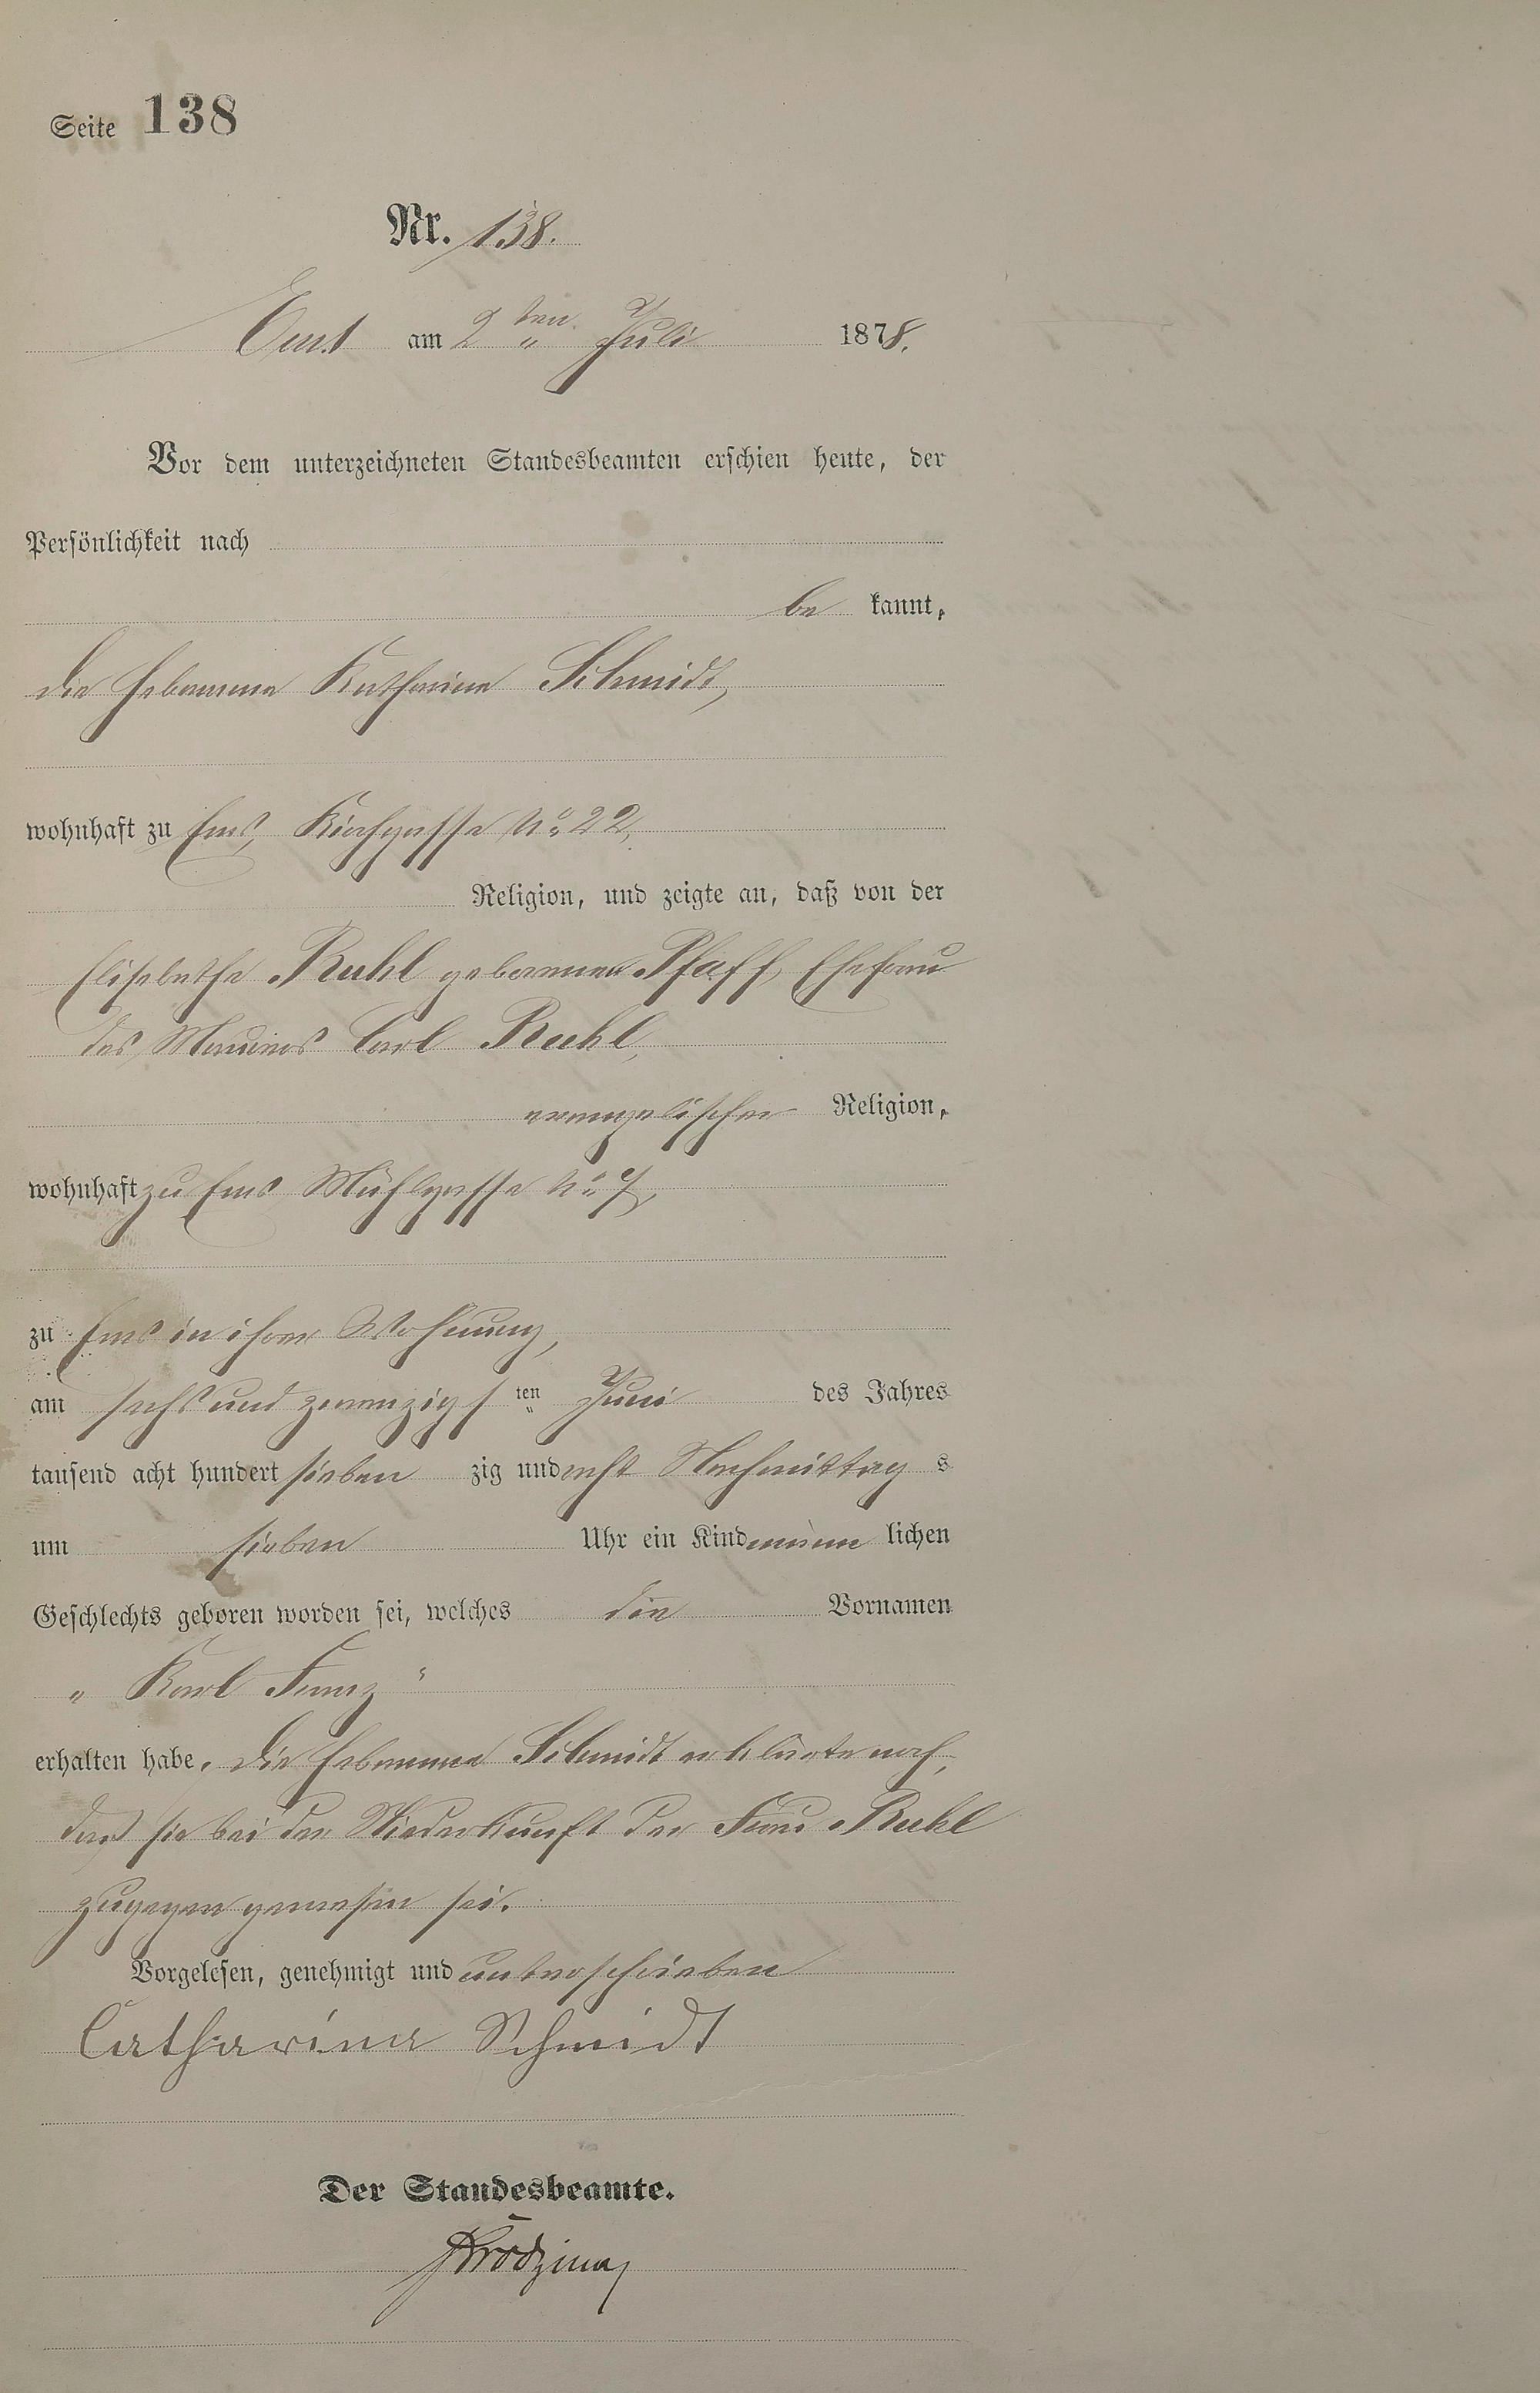 Seite 138
Nr. 138.
Ems am 2ten Juli 1878.
Vor dem unterzeichneten Standesbeamten erschien heute, der
Persönlichkeit nach
be kannt,
die Hebamme Katharina Schmidt,
wohnhaft zu Ems, Kirchgasse No 22,
Religion, und zeigte an, daß von der
Elisabetha Ruhl geborenen Pfaff, Ehefrau
des Maurers Carl Ruhl,
evangelischer Religion,
wohnhaft zu Ems Mühlgasse No 7,
zu Ems in ihrer Wohnung,
am sechs und zwanzigsten Juni des Jahres
tausend acht hundert sieben zig und acht Nachmittag s
um sieben Uhr ein Kind männ lichen
Geschlechts geboren worden sei, welches die Vornamen
„ Karl Franz "
erhalten habe. Die Hebamme Schmidt erklärte noch,
daß sie bei der Niederkunft der Frau Ruhl
zugegen gewesen sei.
Vorgelesen, genehmigt und unterschrieben
Catharina Schmidt
Der Standesbeamte.